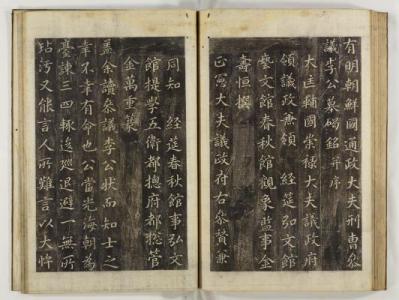 有明朝鮮國通政大夫刑曹參
議李公墓碣銘并序
大匡輔國崇祿大夫議政府
領議政兼領　經筵弘文館
藝文館春秋館觀象監事金
壽恒撰
正憲大夫議政府右參贊兼
同知　經筵春秋館事弘文
館提學五衛都摠府都摠管
金萬重篆
蓋余讀參議李公狀而知士之
幸不幸有命也公當光海朝為
臺諫三四輒逡巡退避一無所
玷污又能言人所難言以大忤